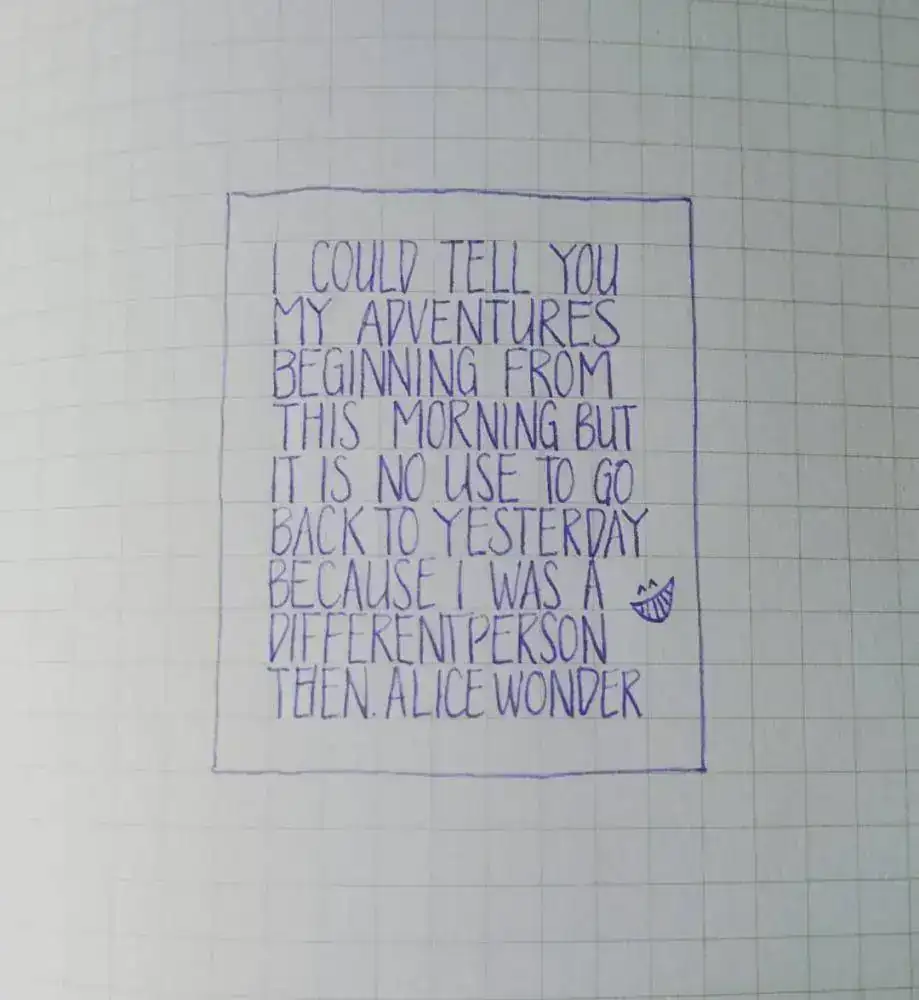 I COULD TELL YOU
MY ADVENTURES
BEGINNING FROM
THIS MORNING BUT
IT IS NO USE TO GO
BACK TO YESTERDAY
BECAUSE I WAS A
DIFFERENT PERSON
THEN. ALICE WONDER